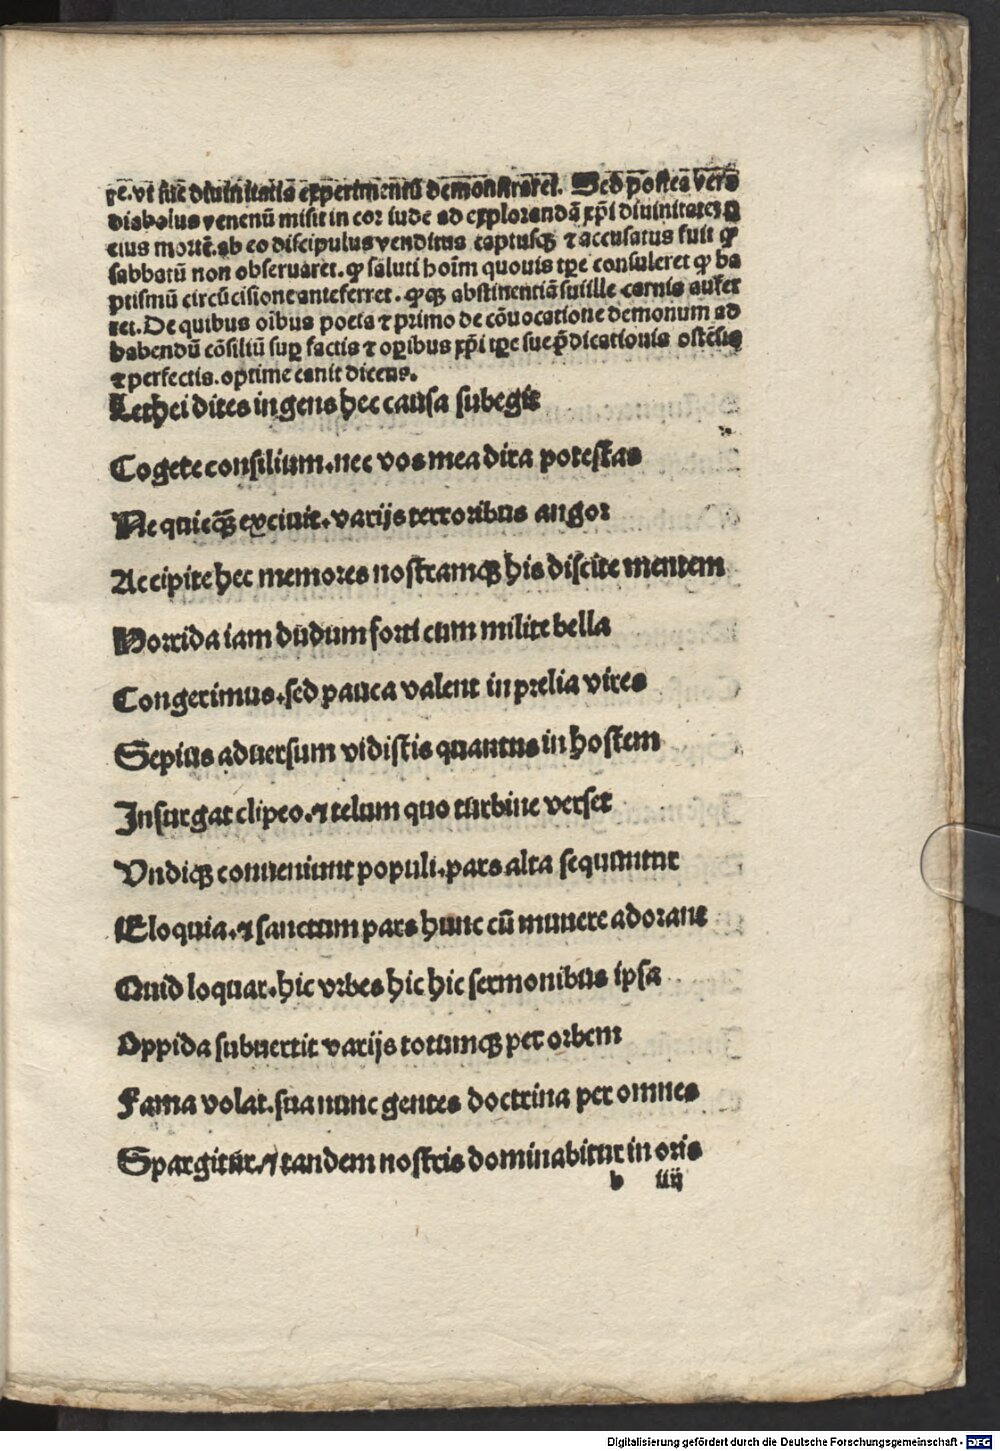 re.vt sue diuinitatis experimentū demonstraret. Sed postea vero
diabolus venenū misit in cor iude ad explorandā xp̄i diuinitatē
eius mortē.ab eo discipulus venditus captusqꝫ ⁊ accusatus fuit ꝙ
sabbatū non obseruaret.ꝙ saluti hoīm quouis tp̄e consuleret ꝙ ba
ptismū circūcisione anteferret.ꝙqꝫ abstinentiā suille carnis aufer
ret.De quibus oībus poeta ⁊ primo de cōuocatione demonum ad
habendū cōsiliū suꝑ factis ⁊ oꝑibus xp̄i tp̄e sue p̄dicationis ostēsis
⁊ perfectis.optime canit dicens.
Lethei dites ingens hec causa subegit
Cogete consilium.nec vos mea dira potestas
Ne quicqꝫ exciuit.varijs terroribus angor
Accipite hec memores nostramqꝫ his discite mentem
Horrida iam dudum forti cum milite bella
Congerimus.sed pauca valent in prelia vires
Sepius aduersum vidistis quantus in hostem
Insurgat clipeo.⁊ telum quo turbine verset
Vndiqꝫ conueniunt populi.pars alta sequuntur
Eloquia.⁊ sanctum pars hunc cū munere adorant
Quid loquar.hic vrbes hic hic sermonibus ipsa
Oppida subuertit varijs totumqꝫ per orbem
Fama volat.sua nunc gentes doctrina per omnes
Spargitur.⁊ tandem nostris dominabitur in oris
b iiij
Digitalisierung gefördert durch die Deutsche Forschungsgemeinschaft - DFG